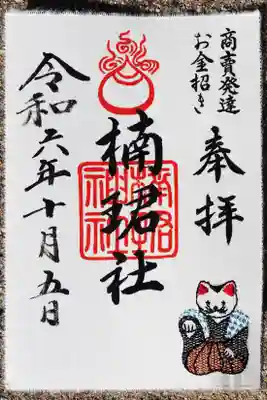 商売発達
お金招き
奉拝
楠珺社
令和六年十月五日